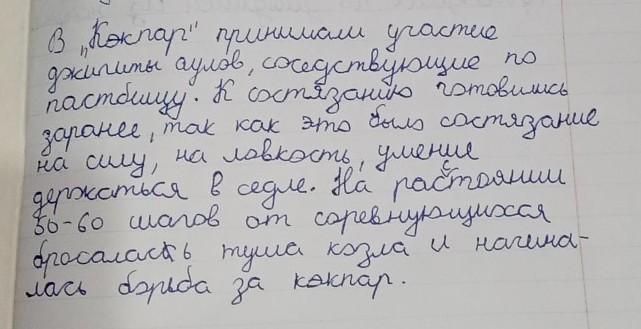 В „Кокпар" принимали участие
джигиты аулов, соседствующие по
пастбищу. К состязанию готовились
заранее, так как это было состязание
на силу, на ловкость, умение
держаться в седле. На расстоянии
50-60 шагов от соревнующихся
бросалась туша козла и начина-
лась борьба за кокпар.